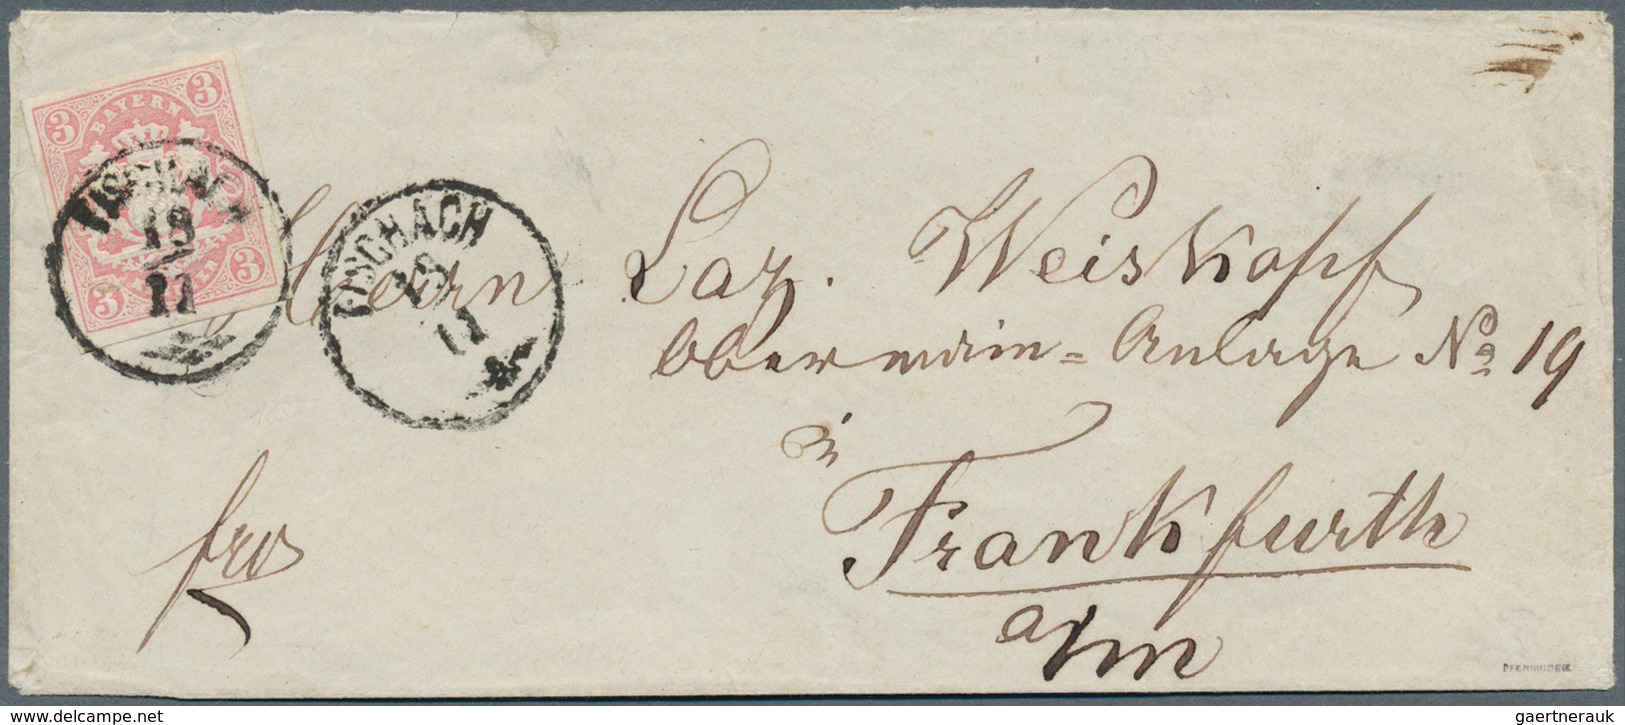 3 BAYERN 3
3 3
FISCHACH
18
11
FISCHACH
18
11
Herrn Laz. Weiskopf
Obermain=Anlage No 19
in
Frankfurth
a/m
fro
PFENNINGER
delcampe.net
gaertnerauk